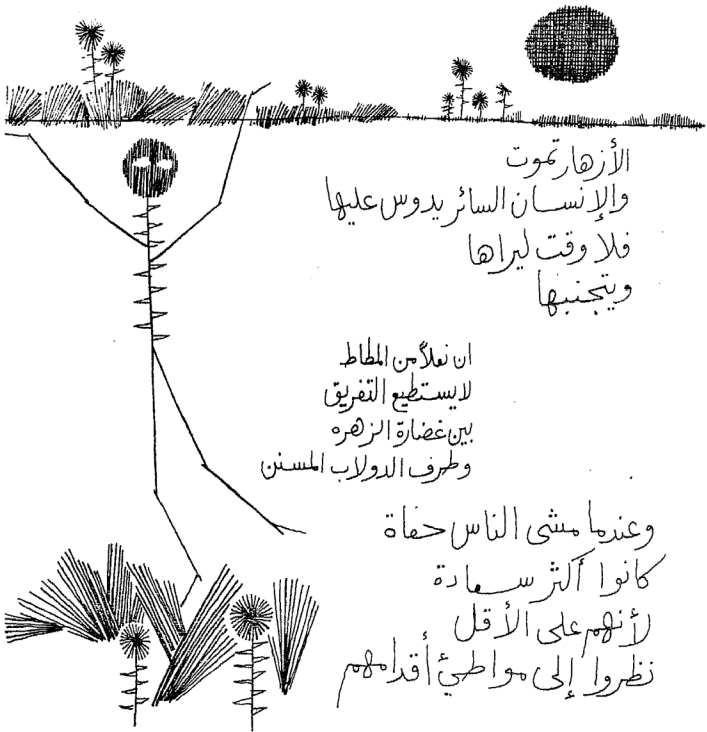 الأزهار تموت
والإنسان السائر يدوس عليها
فلا وقت ليراها
ويتجنبها
ان نعلاً من المطاط
لا يستطيع التفريق
بين غضارة الزهره
وطرف الدولاب المسنن
وعندما مشى الناس حفاة
كانوا أكثر سعادة
لأنهم على الأقل
نظروا إلى مواطئ أقدامهم